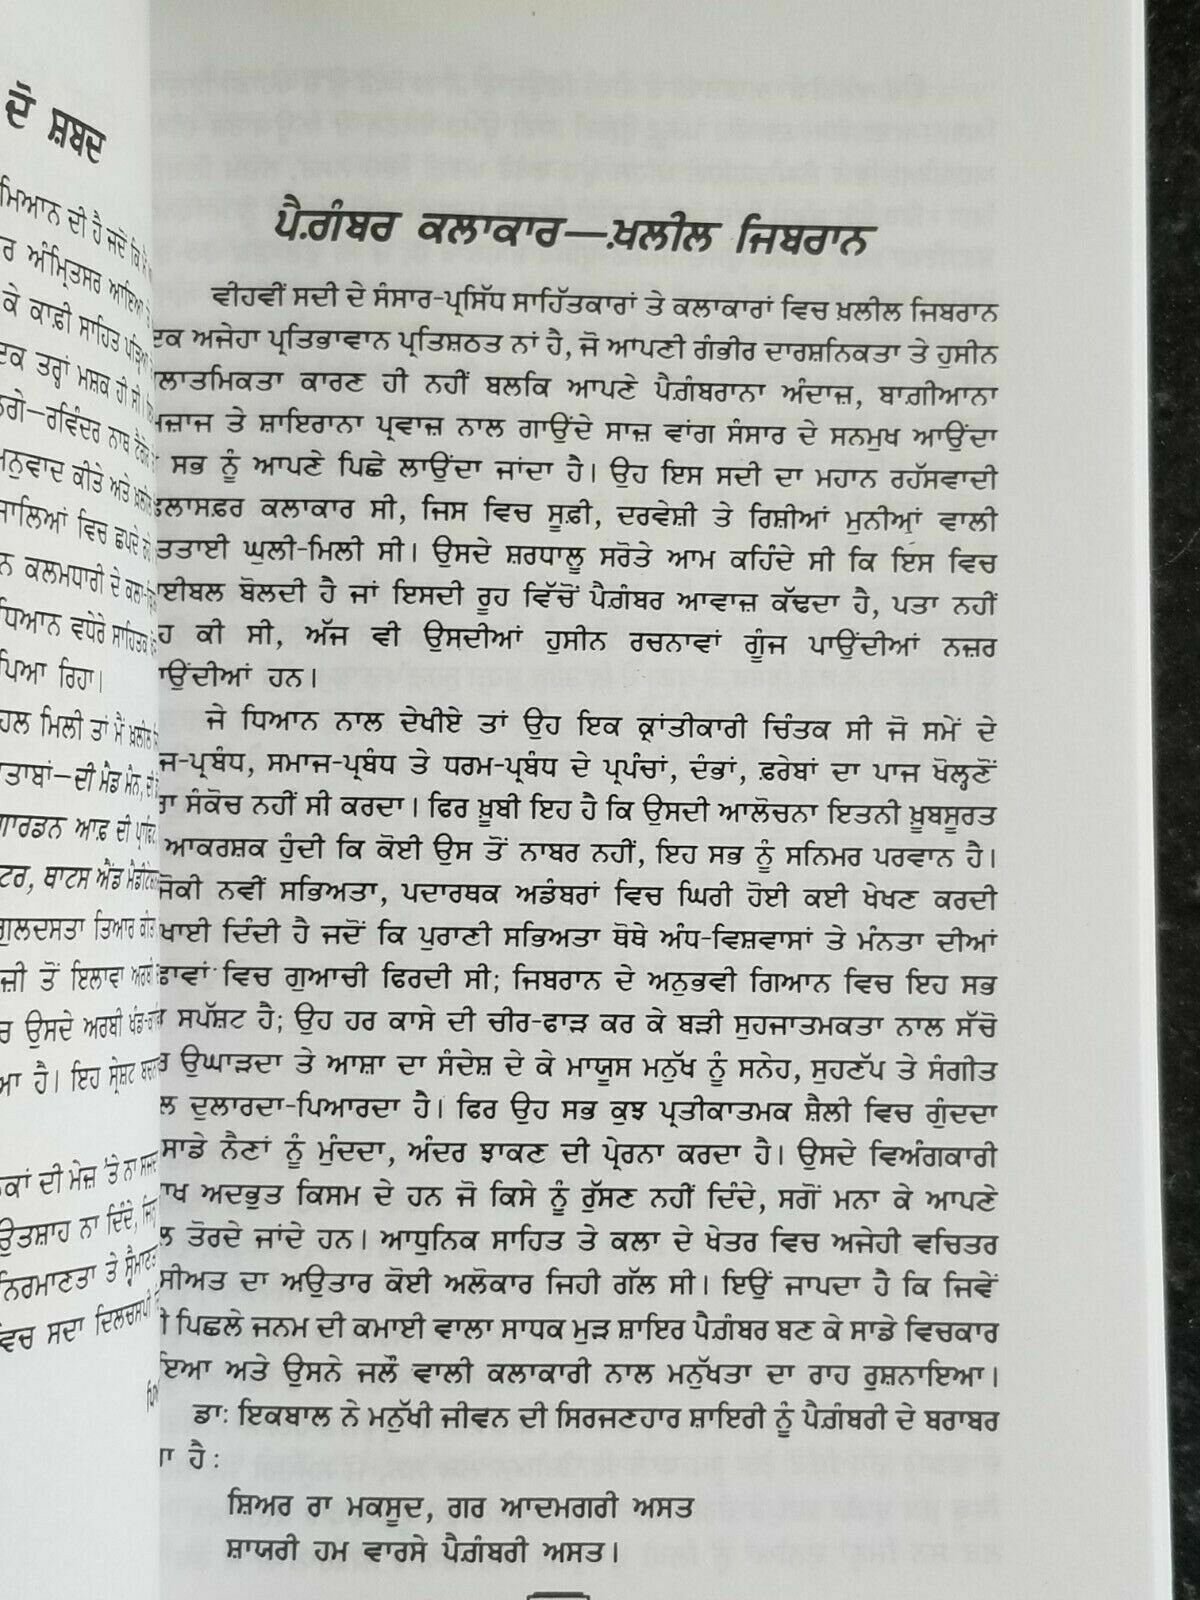 ਦੋ ਸ਼ਬਦ
ਮਿਆਨ ਦੀ ਹੈ ਜਦੋਂ ਕਿ ਮੈਂ
ਰ ਅੰਮ੍ਰਿਤਸਰ ਆਇਆ
ਕੇ ਕਾਫ਼ੀ ਸਾਹਿਤ ਪੜ੍ਹਿਆ
ਤਰ੍ਹਾਂ ਮਸ਼ਕ ਹੀ ਸੀ।
ਰਵਿੰਦਰ ਨਾਥ ਟੈਗੋਰ
ਕੀਤੇ ਅਤੇ ਖ਼ਲੀਲ
ਵਿਚ ਛਪਦੇ ਰਹੇ
ਨ ਕਲਮਧਾਰੀ ਦੇ ਕਲਾ
ਧਿਆਨ ਵਧੇਰੇ ਸਾਹਿਤਕ
ਪਿਆ ਰਿਹਾ।
ਹਲ ਮਿਲੀ ਤਾਂ ਮੈਂ ਖ਼ਲੀਲ
ਤਾਬਾਂ—ਦੀ ਮੈਡ ਮੈਨ, ਦੀ
ਗਾਰਡਨ ਆਫ਼ ਦੀ ਪ੍ਰਾਫਿਟ
ਟਰ, ਥਾਟਸ ਐਂਡ ਮੈਡੀਟੇਸ਼ਨ
ਗੁਲਦਸਤਾ ਤਿਆਰ ਕੀਤਾ
ਜ਼ੀ ਤੋਂ ਇਲਾਵਾ ਅਰਬੀ
ਚ ਉਸਦੇ ਅਰਬੀ ਖੰਡ
ਆ ਹੈ। ਇਹ ਸ੍ਰੇਸ਼ਟ ਬਚਨ
ਕਾਂ ਦੀ ਮੇਜ਼ 'ਤੇ ਨਾ ਸਜਦ
ਉਤਸ਼ਾਹ ਨਾ ਦਿੰਦੇ,
ਨਿਰਮਾਣਤਾ ਤੇ
ਵਿਚ ਸਦਾ ਦਿਲਚਸਪੀ
ਪੈਗ਼ੰਬਰ ਕਲਾਕਾਰ—ਖ਼ਲੀਲ ਜਿਬਰਾਨ
ਵੀਹਵੀਂ ਸਦੀ ਦੇ ਸੰਸਾਰ-ਪ੍ਰਸਿੱਧ ਸਾਹਿੱਤਕਾਰਾਂ ਤੇ ਕਲਾਕਾਰਾਂ ਵਿਚ ਖ਼ਲੀਲ ਜਿਬਰਾਨ
ਇਕ ਅਜੇਹਾ ਪ੍ਰਤਿਭਾਵਾਨ ਪ੍ਰਤਿਸ਼ਠਤ ਨਾਂ ਹੈ, ਜੋ ਆਪਣੀ ਗੰਭੀਰ ਦਾਰਸ਼ਨਿਕਤਾ ਤੇ ਹੁਸੀਨ
ਲਾਤਮਿਕਤਾ ਕਾਰਣ ਹੀ ਨਹੀਂ ਬਲਕਿ ਆਪਣੇ ਪੈਗ਼ੰਬਰਾਨਾ ਅੰਦਾਜ਼, ਬਾਗ਼ੀਆਨਾ
ਜ਼ਾਜ ਤੇ ਸ਼ਾਇਰਾਨਾ ਪ੍ਰਵਾਜ਼ ਨਾਲ ਗਾਉਂਦੇ ਸਾਜ਼ ਵਾਂਗ ਸੰਸਾਰ ਦੇ ਸਨਮੁਖ ਆਉਂਦਾ
ਸਭ ਨੂੰ ਆਪਣੇ ਪਿਛੇ ਲਾਉਂਦਾ ਜਾਂਦਾ ਹੈ। ਉਹ ਇਸ ਸਦੀ ਦਾ ਮਹਾਨ ਰਹੱਸਵਾਦੀ
ਲਾਸਫ਼ਰ ਕਲਾਕਾਰ ਸੀ, ਜਿਸ ਵਿਚ ਸੂਫ਼ੀ, ਦਰਵੇਸ਼ੀ ਤੇ ਰਿਸ਼ੀਆਂ ਮੁਨੀਆਂ ਵਾਲੀ
ਤਤਾਈ ਘੁਲੀ-ਮਿਲੀ ਸੀ। ਉਸਦੇ ਸ਼ਰਧਾਲੂ ਸਰੋਤੇ ਆਮ ਕਹਿੰਦੇ ਸੀ ਕਿ ਇਸ ਵਿਚ
ਾਈਬਲ ਬੋਲਦੀ ਹੈ ਜਾਂ ਇਸਦੀ ਰੂਹ ਵਿੱਚੋਂ ਪੈਗ਼ੰਬਰ ਆਵਾਜ਼ ਕੱਢਦਾ ਹੈ, ਪਤਾ ਨਹੀਂ
ਹ ਕੀ ਸੀ, ਅੱਜ ਵੀ ਉਸਦੀਆਂ ਹੁਸੀਨ ਰਚਨਾਵਾਂ ਗੂੰਜ ਪਾਉਂਦੀਆਂ ਨਜ਼ਰ
ਾਉਂਦੀਆਂ ਹਨ।
ਜੇ ਧਿਆਨ ਨਾਲ ਦੇਖੀਏ ਤਾਂ ਉਹ ਇਕ ਕ੍ਰਾਂਤੀਕਾਰੀ ਚਿੰਤਕ ਸੀ ਜੋ ਸਮੇਂ ਦੇ
ਜ-ਪ੍ਰਬੰਧ, ਸਮਾਜ-ਪ੍ਰਬੰਧ ਤੇ ਧਰਮ-ਪ੍ਰਬੰਧ ਦੇ ਪ੍ਰਪੰਚਾਂ, ਦੰਭਾਂ, ਫ਼ਰੇਬਾਂ ਦਾ ਪਾਜ ਖੋਲ੍ਹਣੋਂ
ਾ ਸੰਕੋਚ ਨਹੀਂ ਸੀ ਕਰਦਾ। ਫਿਰ ਖ਼ੂਬੀ ਇਹ ਹੈ ਕਿ ਉਸਦੀ ਆਲੋਚਨਾ ਇਤਨੀ ਖ਼ੂਬਸੂਰਤ
ਆਕਰਸ਼ਕ ਹੁੰਦੀ ਕਿ ਕੋਈ ਉਸ ਤੋਂ ਨਾਬਰ ਨਹੀਂ, ਇਹ ਸਭ ਨੂੰ ਸਨਿਮਰ ਪਰਵਾਨ ਹੈ।
ਜੋਕੀ ਨਵੀਂ ਸਭਿਅਤਾ, ਪਦਾਰਥਕ ਅਡੰਬਰਾਂ ਵਿਚ ਘਿਰੀ ਹੋਈ ਕਈ ਖੇਖਣ ਕਰਦੀ
ਖਾਈ ਦਿੰਦੀ ਹੈ ਜਦੋਂ ਕਿ ਪੁਰਾਣੀ ਸਭਿਅਤਾ ਥੋਥੇ ਅੰਧ-ਵਿਸ਼ਵਾਸਾਂ ਤੇ ਮੰਨਤਾ ਦੀਆਂ
ਫਾਵਾਂ ਵਿਚ ਗੁਆਚੀ ਫਿਰਦੀ ਸੀ; ਜਿਬਰਾਨ ਦੇ ਅਨੁਭਵੀ ਗਿਆਨ ਵਿਚ ਇਹ ਸਭ
ਸਪੱਸ਼ਟ ਹੈ; ਉਹ ਹਰ ਕਾਸੇ ਦੀ ਚੀਰ-ਫਾੜ ਕਰ ਕੇ ਬੜੀ ਸੁਹਜਾਤਮਕਤਾ ਨਾਲ ਸੱਚੋ
ਚ ਉਘਾੜਦਾ ਤੇ ਆਸ਼ਾ ਦਾ ਸੰਦੇਸ਼ ਦੇ ਕੇ ਮਾਯੂਸ ਮਨੁੱਖ ਨੂੰ ਸਨੇਹ, ਸੁਹਣੱਪ ਤੇ ਸੰਗੀਤ
ਲ ਦੁਲਾਰਦਾ-ਪਿਆਰਦਾ ਹੈ। ਫਿਰ ਉਹ ਸਭ ਕੁਝ ਪ੍ਰਤੀਕਾਤਮਕ ਸ਼ੈਲੀ ਵਿਚ ਗੁੰਦਦਾ
ਸਾਡੇ ਨੈਣਾਂ ਨੂੰ ਮੁੰਦਦਾ, ਅੰਦਰ ਝਾਕਣ ਦੀ ਪ੍ਰੇਰਨਾ ਕਰਦਾ ਹੈ। ਉਸਦੇ ਵਿਅੰਗਕਾਰੀ
ਾਖ ਅਦਭੁਤ ਕਿਸਮ ਦੇ ਹਨ ਜੋ ਕਿਸੇ ਨੂੰ ਰੁੱਸਣ ਨਹੀਂ ਦਿੰਦੇ, ਸਗੋਂ ਮਨਾ ਕੇ ਆਪਣੇ
ਲ ਤੋਰਦੇ ਜਾਂਦੇ ਹਨ। ਆਧੁਨਿਕ ਸਾਹਿਤ ਤੇ ਕਲਾ ਦੇ ਖੇਤਰ ਵਿਚ ਅਜੇਹੀ ਵਚਿਤਰ
ਸੀਅਤ ਦਾ ਅਉਤਾਰ ਕੋਈ ਅਲੋਕਾਰ ਜਿਹੀ ਗੱਲ ਸੀ। ਇਉਂ ਜਾਪਦਾ ਹੈ ਕਿ ਜਿਵੇਂ
ੀ ਪਿਛਲੇ ਜਨਮ ਦੀ ਕਮਾਈ ਵਾਲਾ ਸਾਧਕ ਮੁੜ ਸ਼ਾਇਰ ਪੈਗ਼ੰਬਰ ਬਣ ਕੇ ਸਾਡੇ ਵਿਚਕਾਰ
ਇਆ ਅਤੇ ਉਸਨੇ ਜਲੌ ਵਾਲੀ ਕਲਾਕਾਰੀ ਨਾਲ ਮਨੁੱਖਤਾ ਦਾ ਰਾਹ ਰੁਸ਼ਨਾਇਆ।
ਡਾ: ਇਕਬਾਲ ਨੇ ਮਨੁੱਖੀ ਜੀਵਨ ਦੀ ਸਿਰਜਣਹਾਰ ਸ਼ਾਇਰੀ ਨੂੰ ਪੈਗ਼ੰਬਰੀ ਦੇ ਬਰਾਬਰ
ਾ ਹੈ:
ਸ਼ਿਅਰ ਰਾ ਮਕਸੂਦ, ਗਰ ਆਦਮਗਰੀ ਅਸਤ
ਸ਼ਾਯਰੀ ਹਮ ਵਾਰਸੇ ਪੈਗ਼ੰਬਰੀ ਅਸਤ।